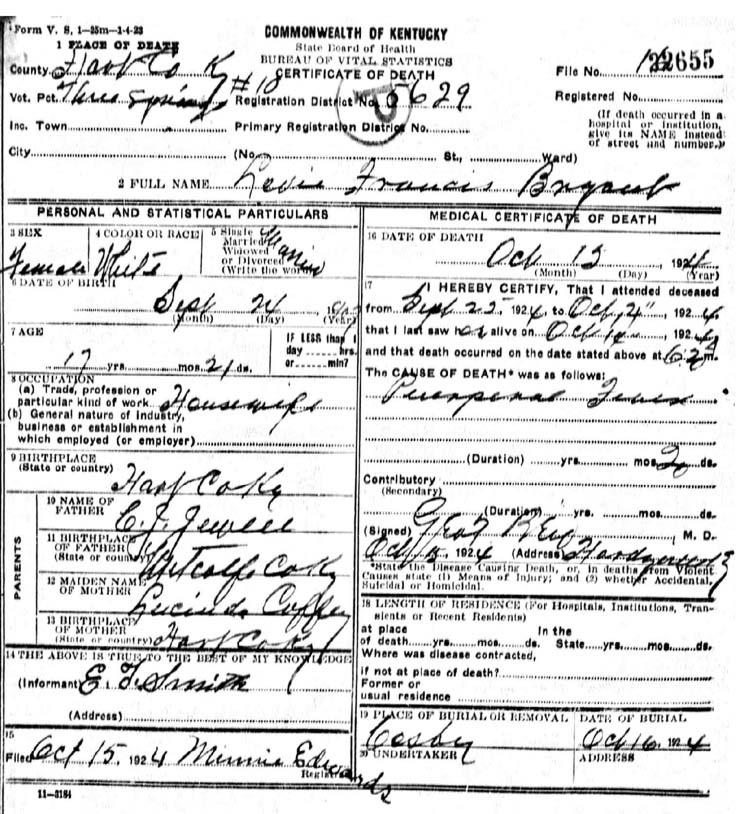 Form V. S. 1—25m—1-4-23
1 PLACE OF DEATH
County Hart Co Ky
Vot. Pct. Three Springs #10
Inc. Town
City (No. St., Ward)
COMMONWEALTH OF KENTUCKY
State Board of Health
BUREAU OF VITAL STATISTICS
CERTIFICATE OF DEATH
Registration District No. 5629
Primary Registration District No.
File No. 22655
Registered No.
(If death occurred in a
hospital or institution,
give its NAME instead
of street and number.)
2 FULL NAME Francis Bryant
PERSONAL AND STATISTICAL PARTICULARS
3 SEX
Female
4 COLOR OR RACE
White
5 Single
Married
Widowed
or Divorced
(Write the word)
Married
6 DATE OF BIRTH
Sept 24
(Month) (Day) (Year)
7 AGE
17 yrs. mos. 21 ds.
IF LESS than 1
day hrs.
or min?
8 OCCUPATION
(a) Trade, profession or
particular kind of work Housewife
(b) General nature of industry,
business or establishment in
which employed (or employer)
9 BIRTHPLACE
(State or country)
Hart Co Ky
PARENTS
10 NAME OF
FATHER
Jewell
11 BIRTHPLACE
OF FATHER
(State or country)
Metcalfe Co Ky
12 MAIDEN NAME
OF MOTHER
Lucinda
13 BIRTHPLACE
OF MOTHER
(State or country) Hart Co Ky
14 THE ABOVE IS TRUE TO THE BEST OF MY KNOWLEDGE
(Informant) Smith
(Address)
15
Filed Oct 15, 1924 Minnie Edwards
Registrar
11—3184
MEDICAL CERTIFICATE OF DEATH
16 DATE OF DEATH
Oct 15 1924
(Month) (Day) (Year)
17 I HEREBY CERTIFY, That I attended deceased
from Sept 25 1924 to Oct 1924
that I last saw her alive on Oct 14, 1924
and that death occurred on the date stated above at m.
The CAUSE OF DEATH* was as follows:
Puerperal Fever
(Duration) yrs. mos. ds.
Contributory
(Secondary)
(Duration) yrs. mos. ds.
(Signed) M. D.
Oct 15, 1924 (Address)
*State the Disease Causing Death, or, in deaths from Violent
Causes state (1) Means of Injury; and (2) whether Accidental,
Suicidal or Homicidal.
18 LENGTH OF RESIDENCE (For Hospitals, Institutions, Tran-
sients or Recent Residents)
at place In the
of death yrs. mos. ds. State yrs. mos. ds.
Where was disease contracted,
if not at place of death?
Former or
usual residence
19 PLACE OF BURIAL OR REMOVAL
Cosby
DATE OF BURIAL
Oct 16, 1924
20 UNDERTAKER
ADDRESS